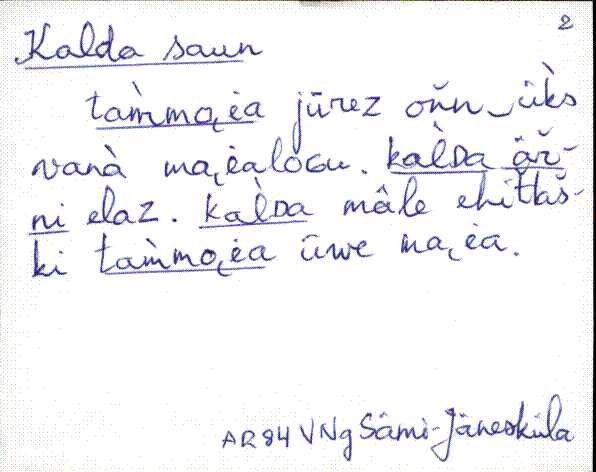 2
Kalda saun
tam̀mo̭ėa jūrez oňn ‿ük̀s
vanà ma̭ėalogu. kal̀da äř-
ni elaz. kal̀da mâle ehitaš-
ki tam̀mo̭ėa ūwe ma̭ėa.
AR 84 VNg Sämi-Jäneskü̈la